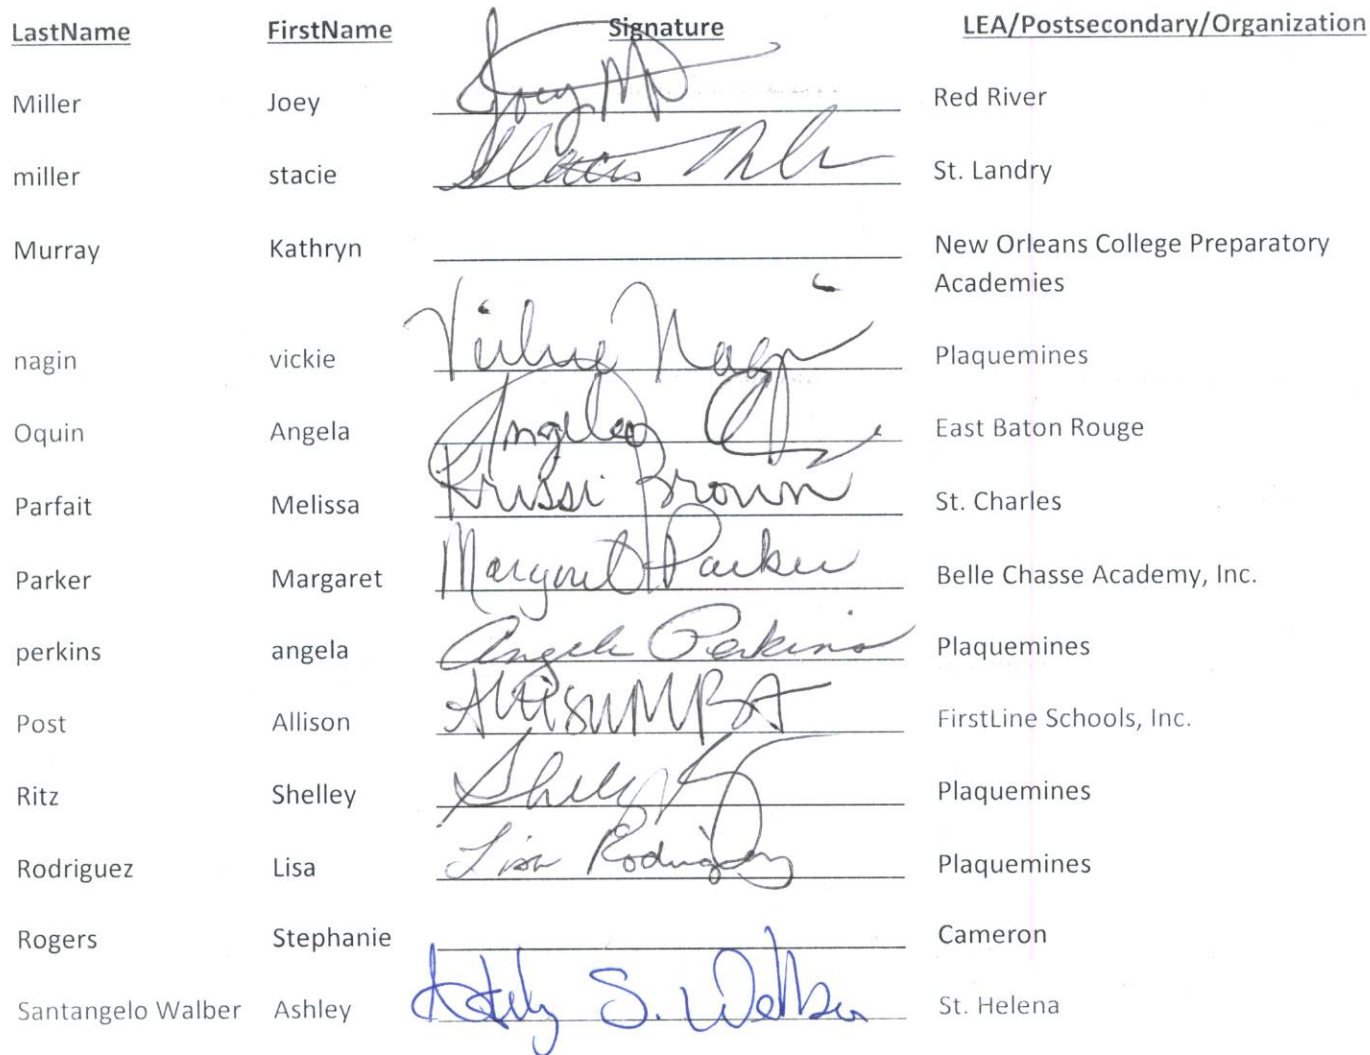 LastName FirstName Signature LEA/Postsecondary/Organization
Miller Joey Joey M Red River
miller stacie Stacie St. Landry
Murray Kathryn New Orleans College Preparatory
Academies
nagin vickie Vickie Nagin Plaquemines
Oquin Angela Angela East Baton Rouge
Parfait Melissa Krissi Brown St. Charles
Parker Margaret Margaret Parker Belle Chasse Academy, Inc.
perkins angela Angela Perkins Plaquemines
Post Allison Allison FirstLine Schools, Inc.
Ritz Shelley Shelley Plaquemines
Rodriguez Lisa Lisa Rodriguez Plaquemines
Rogers Stephanie Cameron
Santangelo Walber Ashley Ashley S. Walber St. Helena